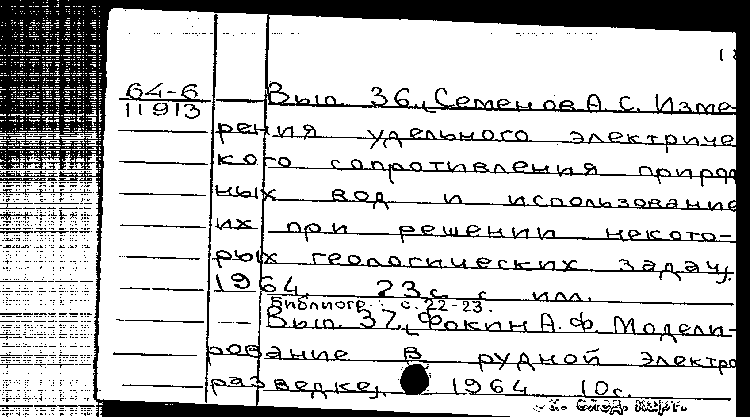 64-6
11913
Вып. 36. [Семенов А. С. Изме-
рения удельного электриче
кого сопротивления природ
ных вод и использование
их при решении некото-
рых геологических задач].
1964. 23 с. с илл.
Библиогр.: с. 22-23.
Вып. 37. [Фокин А. Ф. Модели-
рование в рудной электро
разведке]. 1964 10 с.
след. карт.